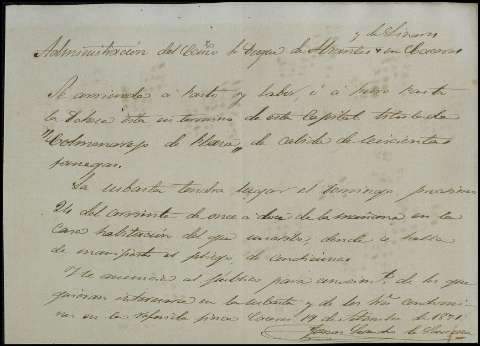 y de Linares
Administración del Excmo Sr Duque de Abrantes en Cáceres
Se arrienda a pasto y labor, ó á puro pasto
la Dehesa sita en termino de esta Capital titulada
"Colmenarejo de Plaza" de cabida de seiscientas
fanegas.
La subasta tendra lugar el domingo proximo
24 del corriente de once a doce de la mañana en la
casa habitacion del que suscribe, donde se halla
de manifiesto el pliego de condiciones
Se anuncia al público para conocimto de los que
quieran interesarse en la subasta y de los
en la referida finca Caceres 19 de Setiembre de 1871